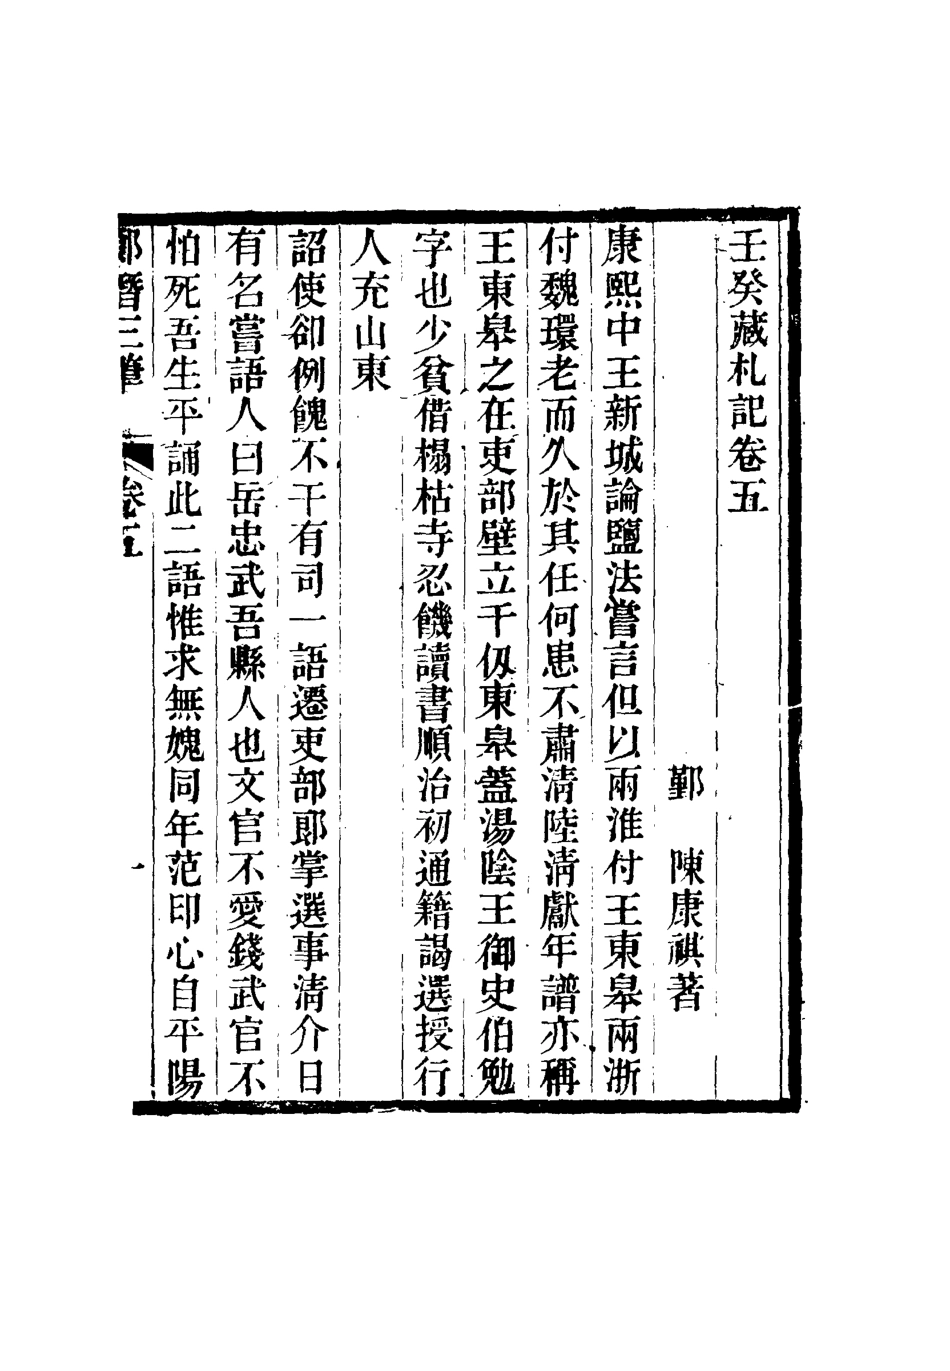 壬癸藏札記卷五
鄞　陳康祺著
康熙中王新城論鹽法嘗言但以兩淮付王東皋兩浙
付魏環老而久於其任何患不肅淸陸淸獻年譜亦稱
王東皋之在吏部壁立千仭東皋蓋湯陰王御史伯勉
字也少貧借榻枯寺忍饑讀書順治初通籍謁選授行
人充山東
詔使卻例餽不干有司一語遷吏部郞掌選事淸介日
有名嘗語人曰岳忠武吾縣人也文官不愛錢武官不
怕死吾生平誦此二語惟求無媿同年范印心自平陽
郞潛三筆　卷五　一